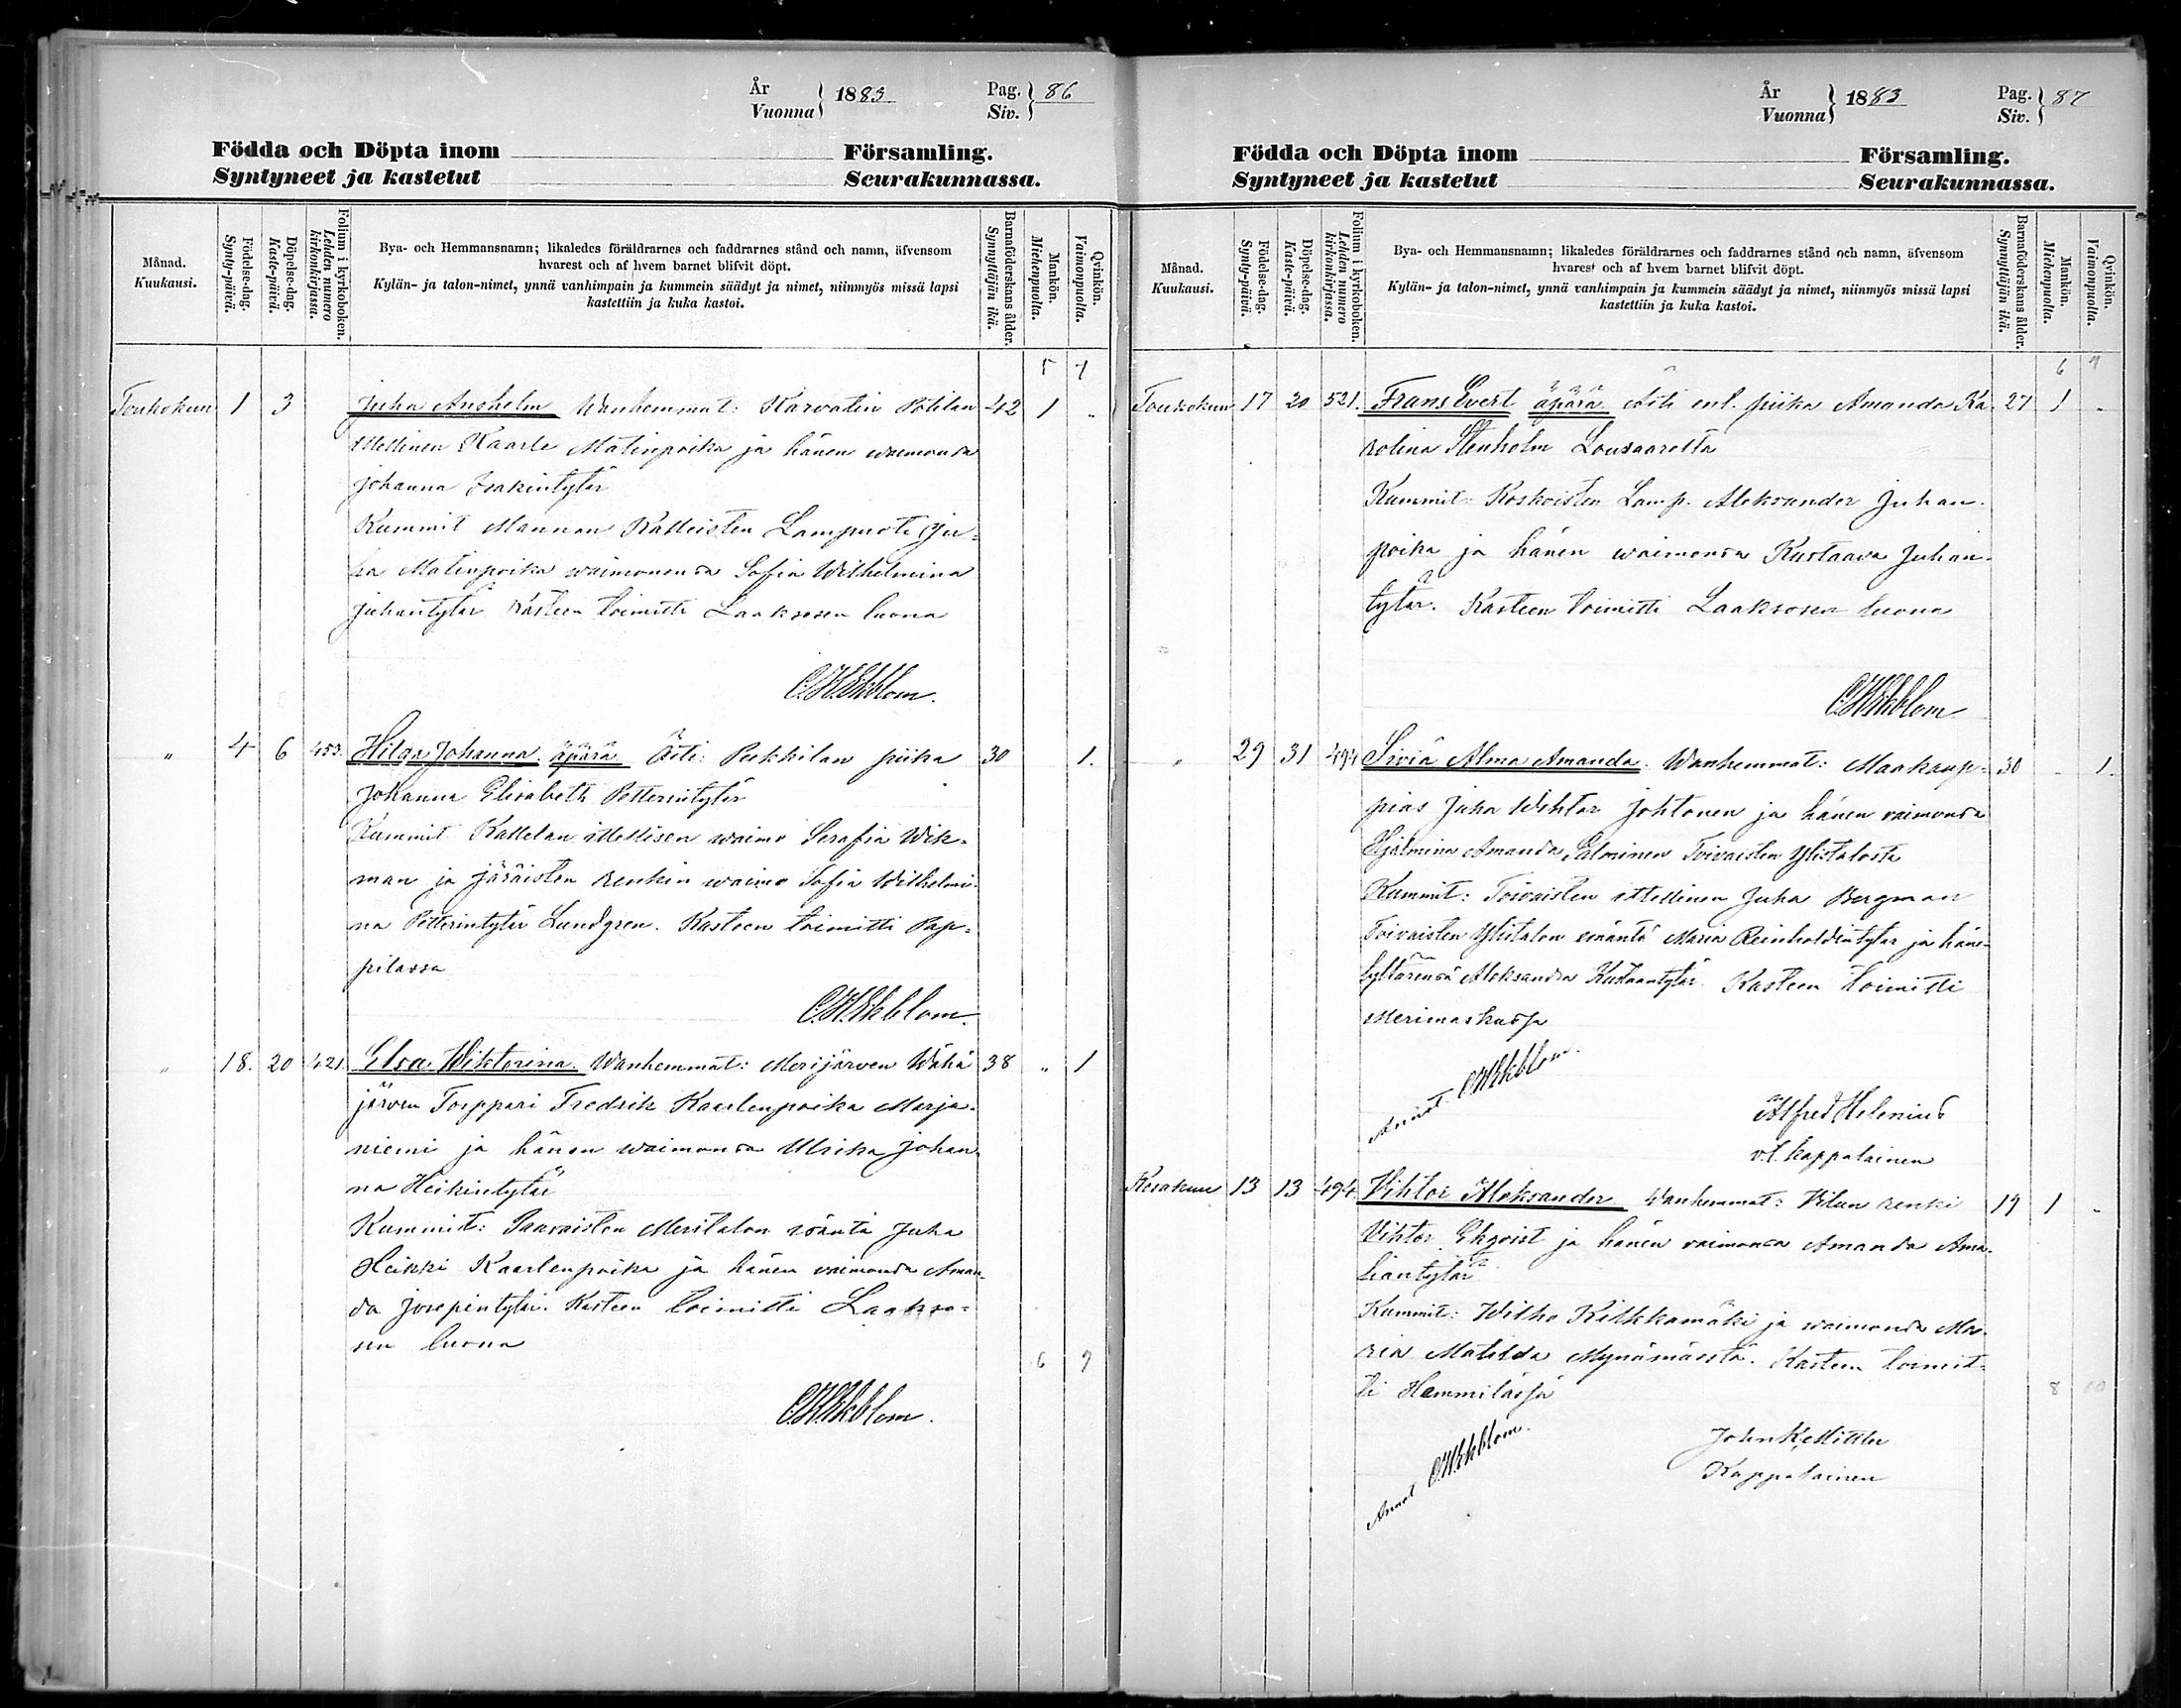 År
Vuonna } 1883. Pag.
Siv. } 86
Födda och Döpta inom Församling.
Syntyneet ja kastetut Seurakunnassa.
Månad.
Kuukausi.
Födelse-dag.
Synty-päivä.
Döpelse-dag.
Kaste-päivä.
Folium i kyrkoboken.
Lehden numero
kirkonkirjassa.
Bya- och Hemmansnamn; likaledes föräldrarnes och faddrarnes stånd och namn, äfvensom
hvarest och af hvem barnet blifvit döpt.
Kylän- ja talon-nimet, ynnä vanhimpain ja kummein säädyt ja nimet, niinmyös missä lapsi
kastettiin ja kuka kastoi.
Barnaföderskans ålder.
Synnyttäjän ikä.
Mankön.
Miehenpuolia.
Qvinkön.
Vaimonpuolia.
5 7
Toukokuu 1 3 Juha Anshelm Wanhemmat: Karvatin Pätilän 42 1 "
ittellinen Kaarle Matinpoika ja hänen waimonsa
Johanna Isakintytär
Kummit Mannan Kalleisten Lampuoti Ju-
ha Matinpoika waimonensa Sofia Wilhelmina
Juhantytär Kasteen toimitti Laaksosen luona
C.W.Ekblom.
" 4 6 453. Hilga Johanna. äpärä Äiti: Pukkilan piika 30 1.
Johanna Elisabeth Petterintytär
Kummit Kallelan ittellisen waimo Serafia Wik-
man ja Järäisten renkin waimo Sofia Wilhelmi-
na Petterintytär Lundgren. Kasteen toimitti Pap-
pilassa
C.W.Ekblom.
" 18. 20 421. Elsa Wiktorina. Wanhemmat: Merijärven Wähä 38 " 1
järven Torppari Fredrik Kaarlenpoika Marja-
niemi ja hänen waimonsa Ulrika Johan-
na Heikintytär
Kummit: Saaroisten Meritalon isäntä Juha
Heikki Kaarlenpoika ja hänen vaimonsa Aman-
da Josepintytär. Kasteen toimitti Laakso-
sen luona
6 9
C.W.Ekblom.
År
Vuonna } 1883 Pag.
Siv. } 87
Födda och Döpta inom Församling.
Syntyneet ja kastetut Seurakunnassa.
Månad.
Kuukausi.
Födelse-dag.
Synty-päivä.
Döpelse-dag.
Kaste-päivä.
Folium i kyrkoboken.
Lehden numero
kirkonkirjassa.
Bya- och Hemmansnamn; likaledes föräldrarnes och faddrarnes stånd och namn, äfvensom
hvarest och af hvem barnet blifvit döpt.
Kylän- ja talon-nimet, ynnä vankimpain ja kummein säädyt ja nimet, niinmyös missä lapsi
kastettiin ja kuka kastoi.
Barnaföderskans ålder.
Synnyttäjän ikä.
Mankön.
Miehenpuolia.
Qvinkön.
Vaimonpuolia.
6 9
Toukokuu 17 20 521. Frans Evert äpärä Äiti ent. piika Amanda Ka- 27 1 "
rolina Stenholm Lousaaresta
Kummit: Koskoisten Lamp. Aleksander Juhan-
poika ja hänen waimonsa Kustaava Juhan-
tytär. Kasteen toimitti Laaksosen luona
C.W.Ekblom
" 29 31 494 Siviä Alma Amanda. Wanhemmat: Maakaup- 30 1.
pias Juha Wihtor Johtonen ja hänen vaimonsa
Hjalmina Amanda Salminen Toivaisten Ylistalosta
Kummit: Toivaisten ittellinen Juha Bergman
Toivaisten Ylistalon emäntä Maria Reinholdintytär ja hänen
tyttärensä Aleksandra Kustaantytär. Kasteen toimitti
Merimaskussa
Annot. C.W.Ekblom.
Alfred Helenius
v.t. kappalainen
Kesäkuu 13 13 494 Vihtor Aleksander Wanhemmat: Vilun renki 19 1 "
Vihtor Ekqvist ja hänen vaimonsa Amanda Ama-
liantytär
Kummit: Wilho Kilkkamäki ja waimonsa Ma-
ria Matilda Mynämäestä. Kasteen toimit-
ti Hammilassa
8 10
Annot C.W.Ekblom.
John K. Mittler
Kappalainen